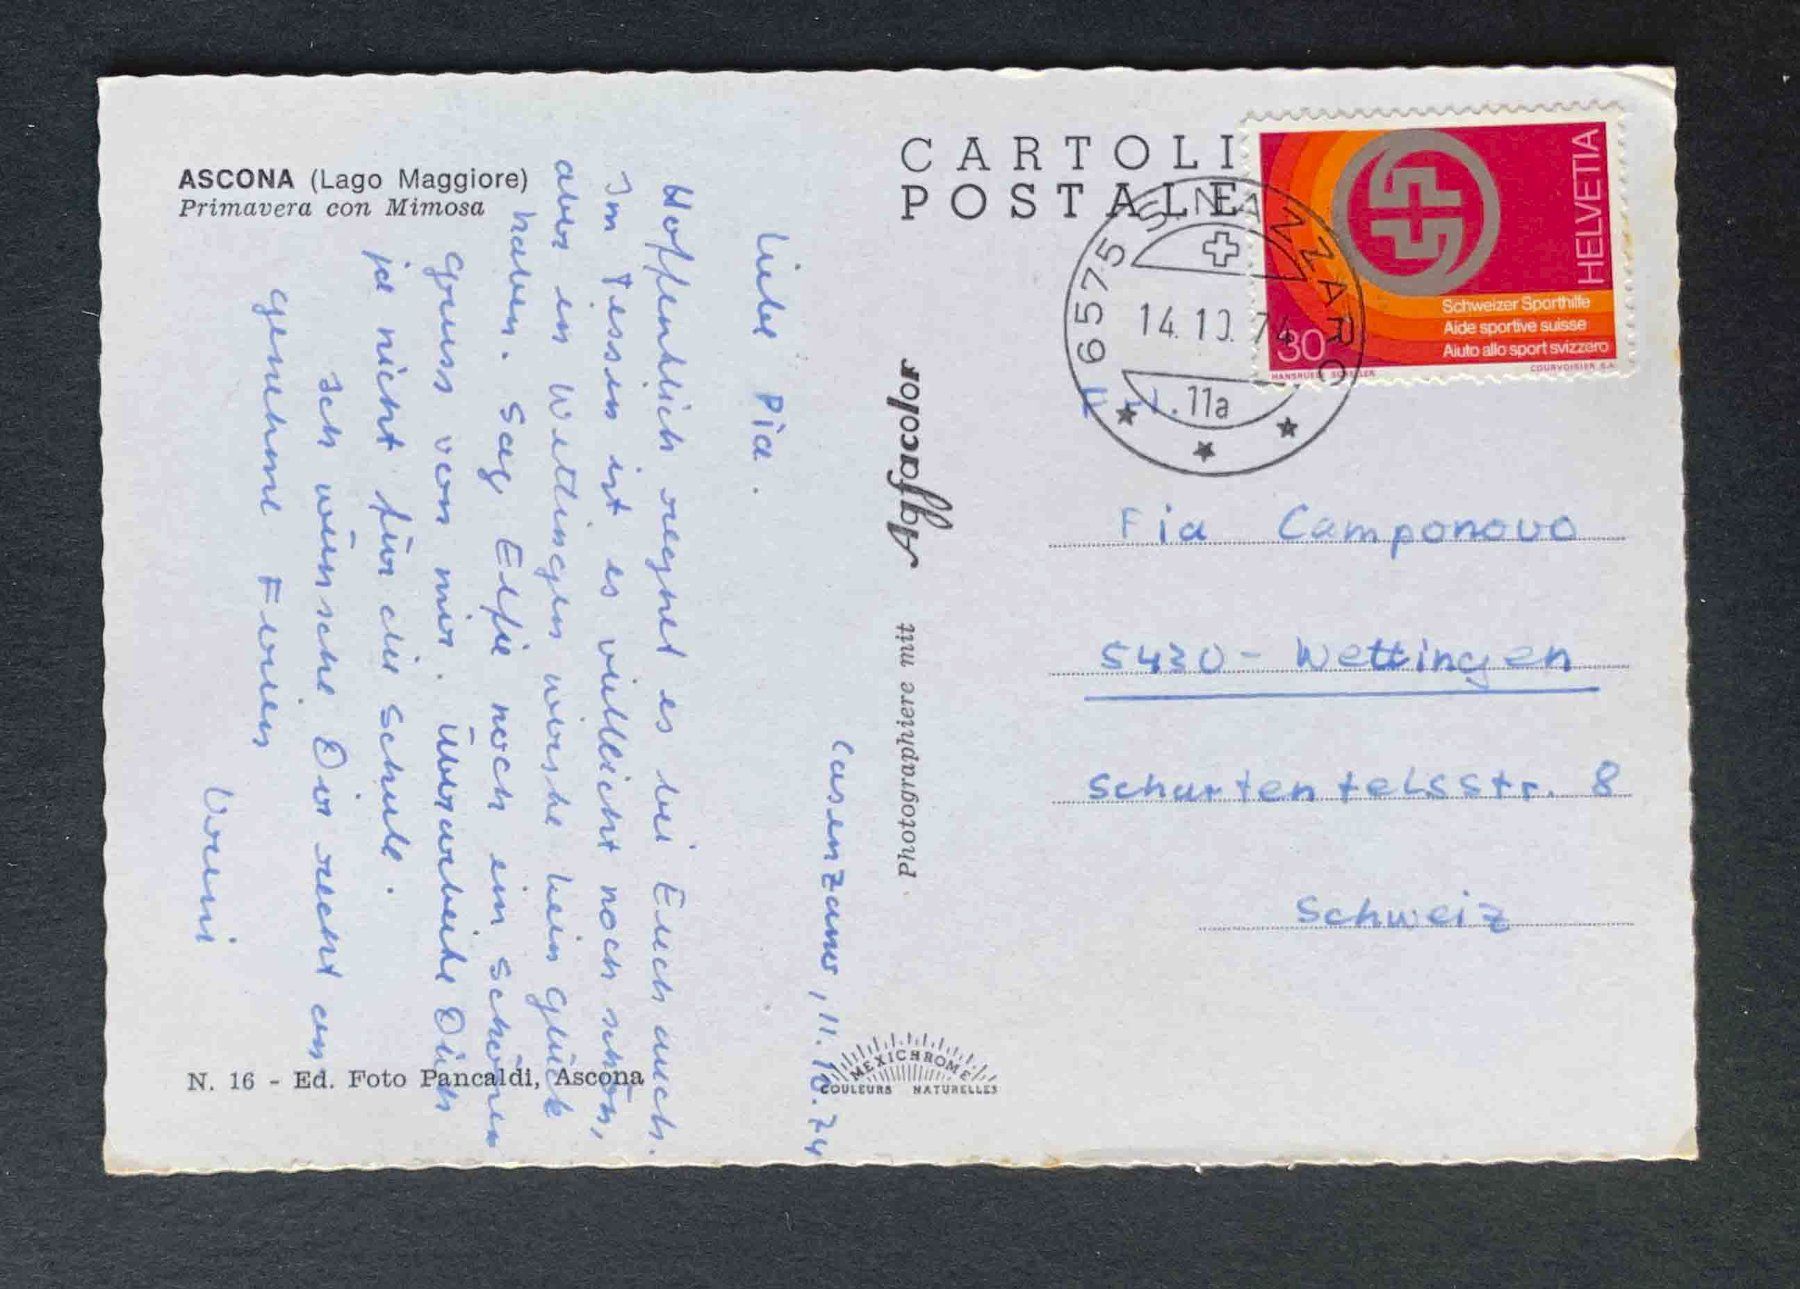 ASCONA (Lago Maggiore)
Primavera con Mimosa
Casenzano, 11.10.74
Liebe Pia.
Hoffentlich regnet es bei Euch auch.
Im Tessin ist es vielleicht noch schön,
aber in Wettingen wirst du kein Glück
haben. Sag Elfie noch ein schönen
gruss von mir. Überarbeite Dich
ja nicht für die Schule.
Ich wünsche Dir recht an
genehme Ferien
Vreni
N. 16 - Ed. Foto Pancaldi, Ascona
Photographiere mit Agfacolor
MEXICHROME
COULEURS NATURELLES
CARTOLI
POSTALE
6575 S. NAZZARO
14.10.74
11a
HELVETIA
Schweizer Sporthilfe
Aide sportive suisse
Aiuto allo sport svizzero
30
COURVOISIER S.A.
Pia Camponovo
5430 - Wettingen
Schartenfelsstr. 8
Schweiz